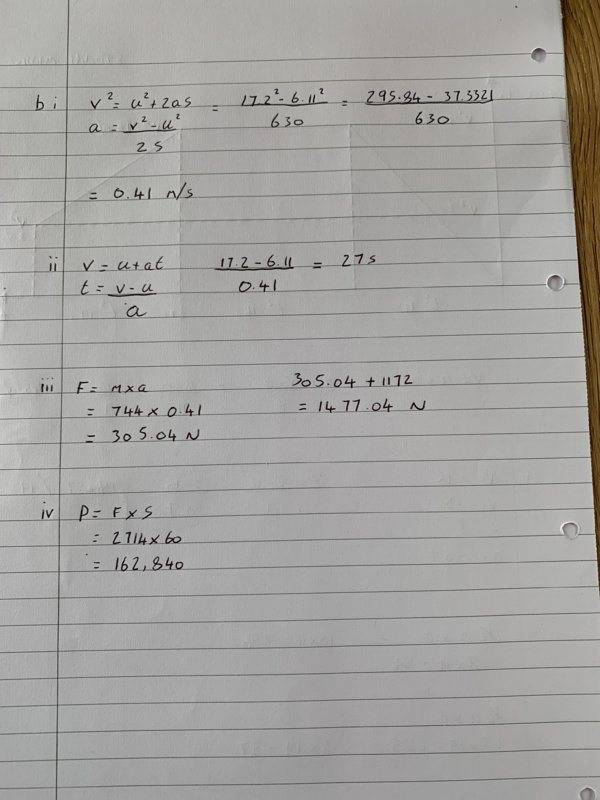 b i v² = u² + 2as = 17.2² - 6.11² / 630 = 295.84 - 37.3321 / 630
a = v² - u² / 2s
= 0.41 n/s
ii v = u + at 17.2 - 6.11 / 0.41 = 27s
t = v - u / a
iii F = m x a 305.04 + 1172
= 744 x 0.41 = 1477.04 N
= 305.04 N
iv P = F x S
= 2714 x 60
= 162,840